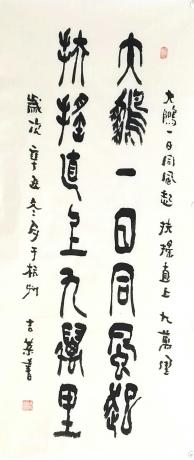 大鵬一日同風起 扶搖直上九萬里
大鵬一日同風起
扶搖直上九萬里
歲次辛丑冬月于杭州 吉 書